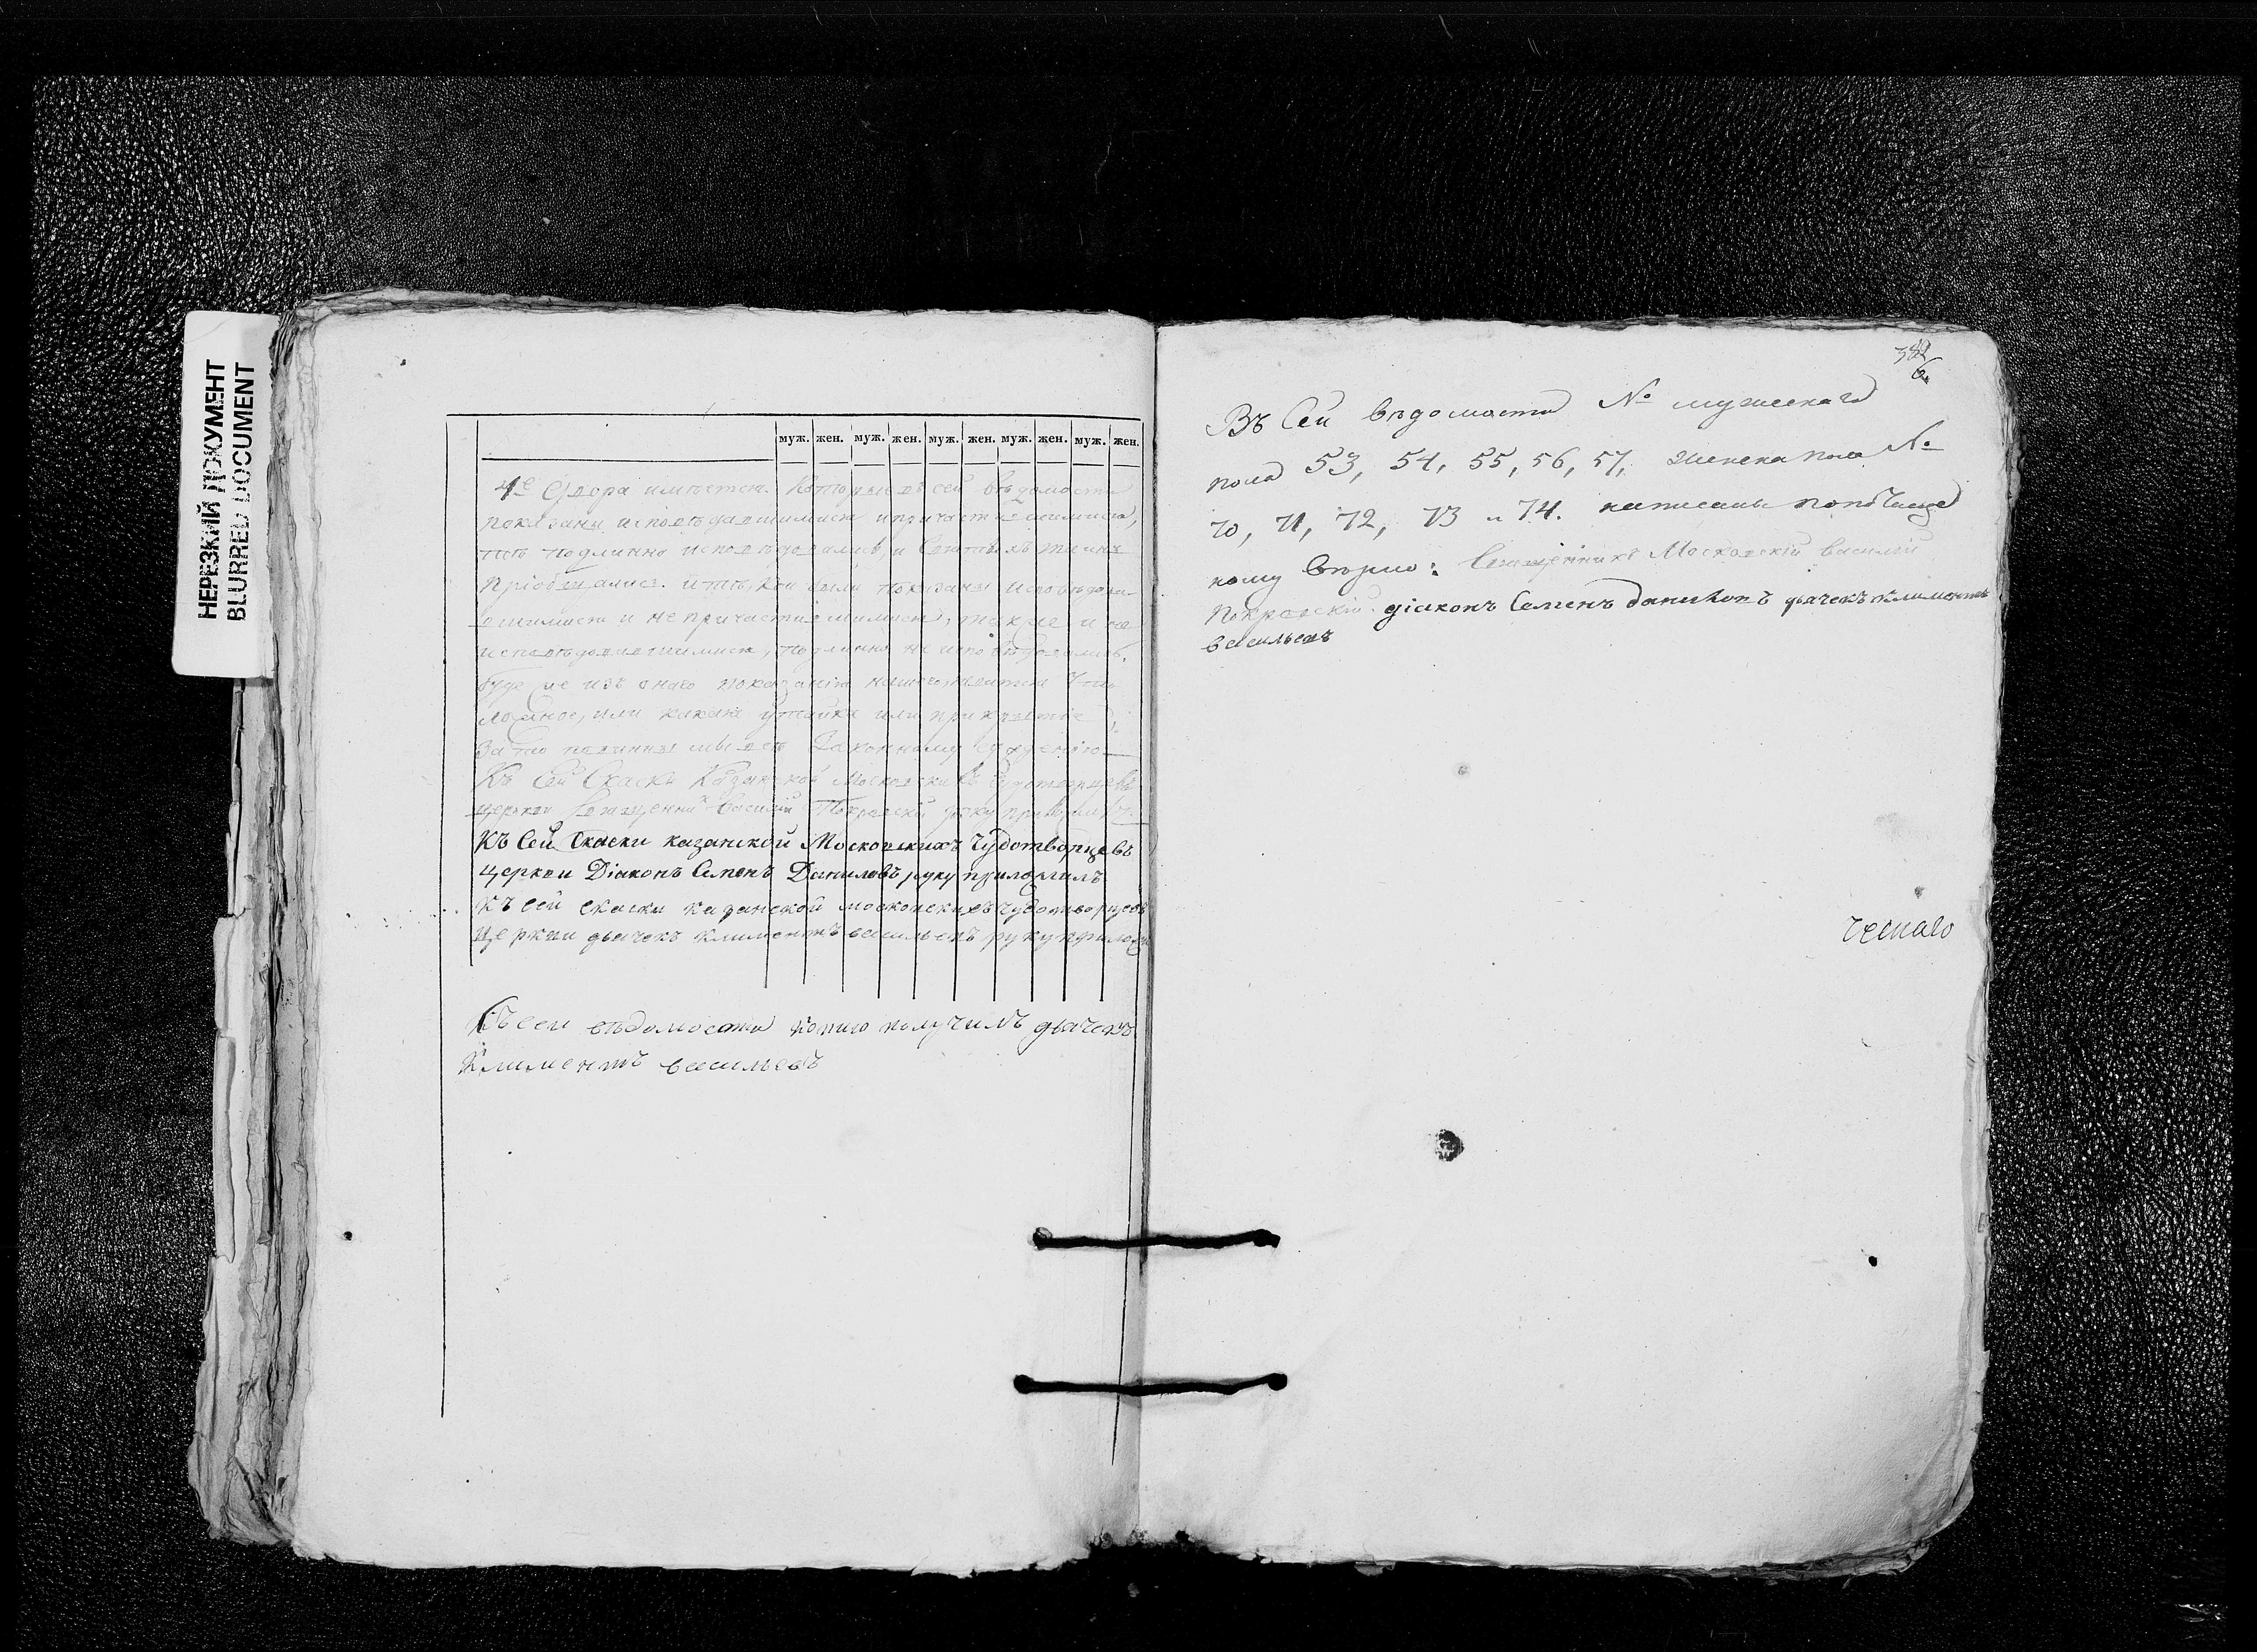 НЕРЕЗКИЙ ДОКУМЕНТ
BLURRED DOCUMENT
муж. жен. муж. жен. муж. жен. муж. жен. муж. жен.
4е двора имѣется. Которыи въ сей вѣдомости
показаны исповѣдавшимися и причастившимися,
тѣ подлинно исповѣдовались, и Святыхъ таинъ
пріобщались. и тѣ, кои были показаны исповѣдова-
вшимися и непричастившимися, также и не
исповѣдовавшимися, подлинно не исповѣдовались.
буде же изъ онаго показанія нашего, явится что
ложное, или какая утайка или прикрытіе
за то повинны мы всѣ Законному суждению
Къ Сей Скаски Казанской Московскихъ Чудотворцевъ
церкви Священникъ Василій Покровскій руку приложилъ
Къ Сей Скаски казанской Московскихъ Чудотворцевъ
Церкви Діаконъ Семенъ Даниловъ руку приложилъ
Къ сей скаски казанской московскихъ чудотворцевъ
Церкви дьячекъ климентъ васильевъ руку прилож
Съ сеи вѣдомости копию получилъ дьячекъ
Климентъ васильевъ
Въ Сей вѣдомости № мужескаго
пола 53, 54, 55, 56, 57, женска пола №
70, 71, 72, 73 и 74. написаны по
ному вѣрно: Священникъ Московскій Василій
Покровскій. діаконъ Семенъ даниловъ дьячекъ климентъ
васильевъ